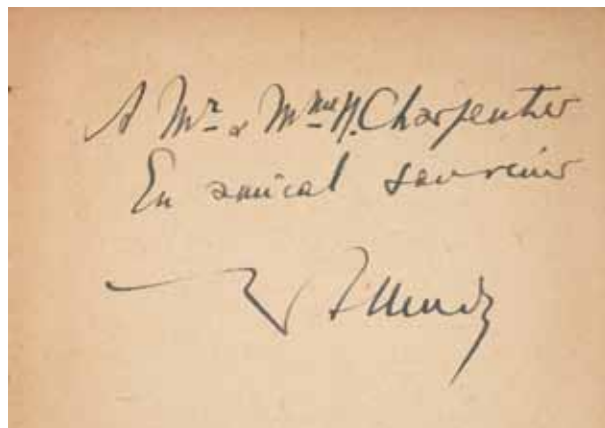 A Mr & Mme H. Charpentier
En amical souvenir